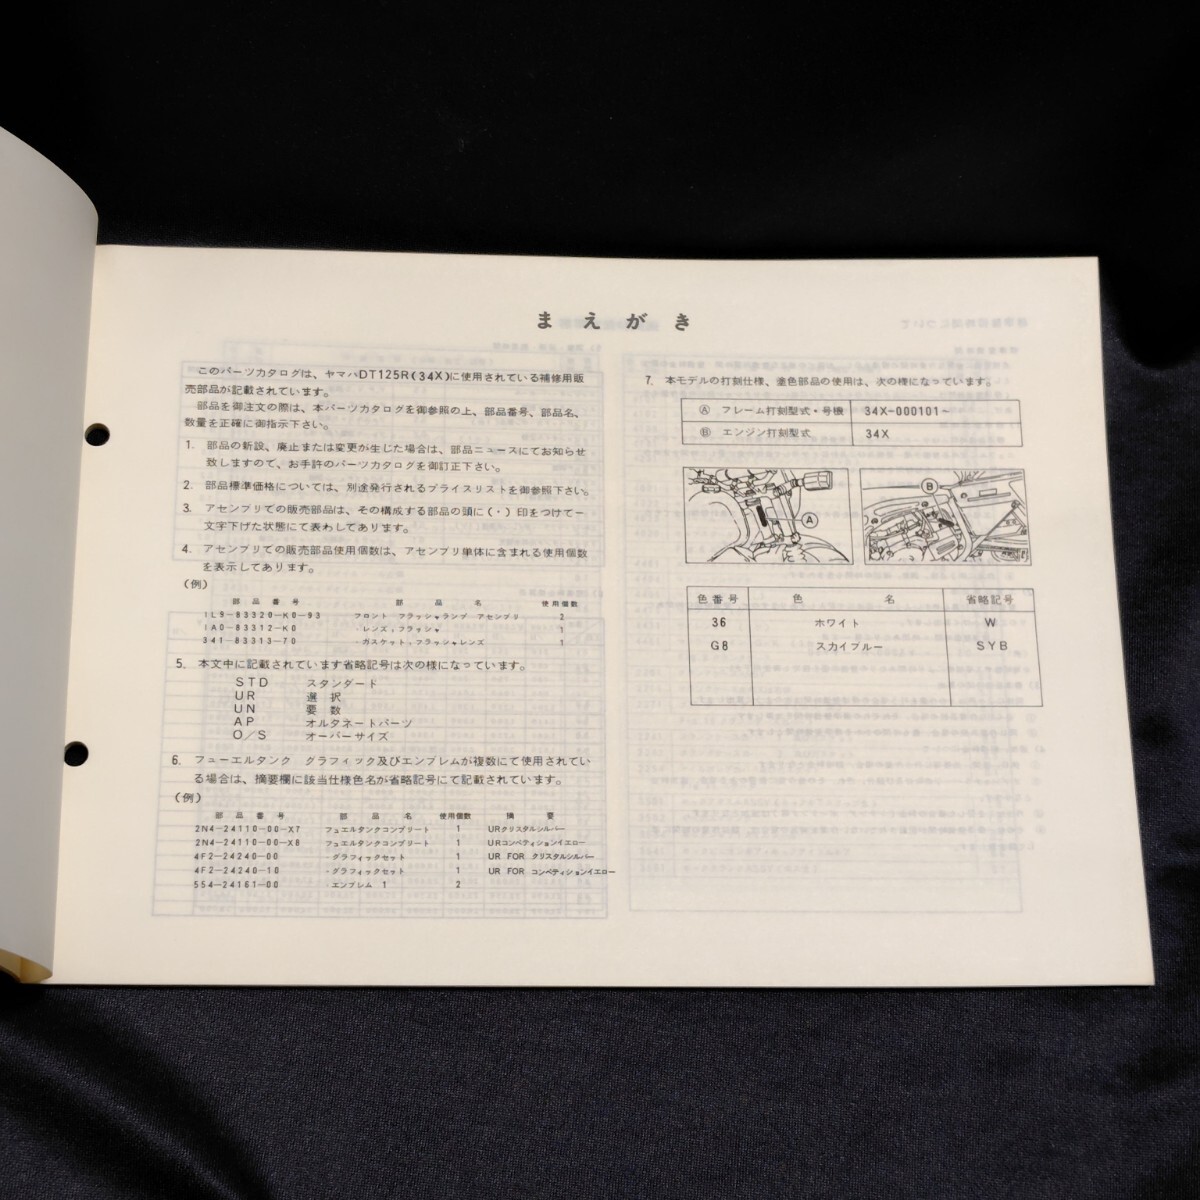 まえがき
このパーツカタログは、ヤマハDT125R(34X)に使用されている補修用販
売部品が記載されています。
部品を御注文の際は、本パーツカタログを御参照の上、部品番号、部品名、
数量を正確に御指示下さい。
1. 部品の新設、廃止または変更が生じた場合は、部品ニュースにてお知らせ
致しますので、お手許のパーツカタログを御訂正下さい。
2. 部品標準価格については、別途発行されるプライスリストを御参照下さい。
3. アセンブリでの販売部品は、その構成する部品の頭に(・)印をつけて一
文字下げた状態にて表わしてあります。
4. アセンブリでの販売部品使用個数は、アセンブリ単体に含まれる使用個数
を表示してあります。
(例)
部品番号 部品名 使用個数
1L9-83320-K0-93 フロント フラッシャランプ アセンブリ 2
1A0-83312-K0 ・レンズ,フラッシャ 1
341-83313-70 ・ガスケット,フラッシャレンズ 1
5. 本文中に記載されています省略記号は次の様になっています。
STD スタンダード
UR 選択
UN 要数
AP オルタネートパーツ
O/S オーバーサイズ
6. フューエルタンク グラフィック及びエンブレムが複数にて使用されてい
る場合は、摘要欄に該当仕様色名が省略記号にて記載されています。
(例)
部品番号 部品名 使用個数 摘要
2N4-24110-00-X7 フュエルタンクコンプリート 1 URクリスタルシルバー
2N4-24110-00-X8 フュエルタンクコンプリート 1 URコンペティションイエロー
4F2-24240-00 ・グラフィックセット 1 UR FOR クリスタルシルバー
4F2-24240-10 ・グラフィックセット 1 UR FOR コンペティションイエロー
554-24161-00 ・エンブレム 1 2
7. 本モデルの打刻仕様、塗色部品の使用は、次の様になっています。
Ⓐ フレーム打刻型式・号機 34X-000101~
Ⓑ エンジン打刻型式 34X
Ⓐ
Ⓑ
色番号 色名 省略記号
36 ホワイト W
G8 スカイブルー SYB